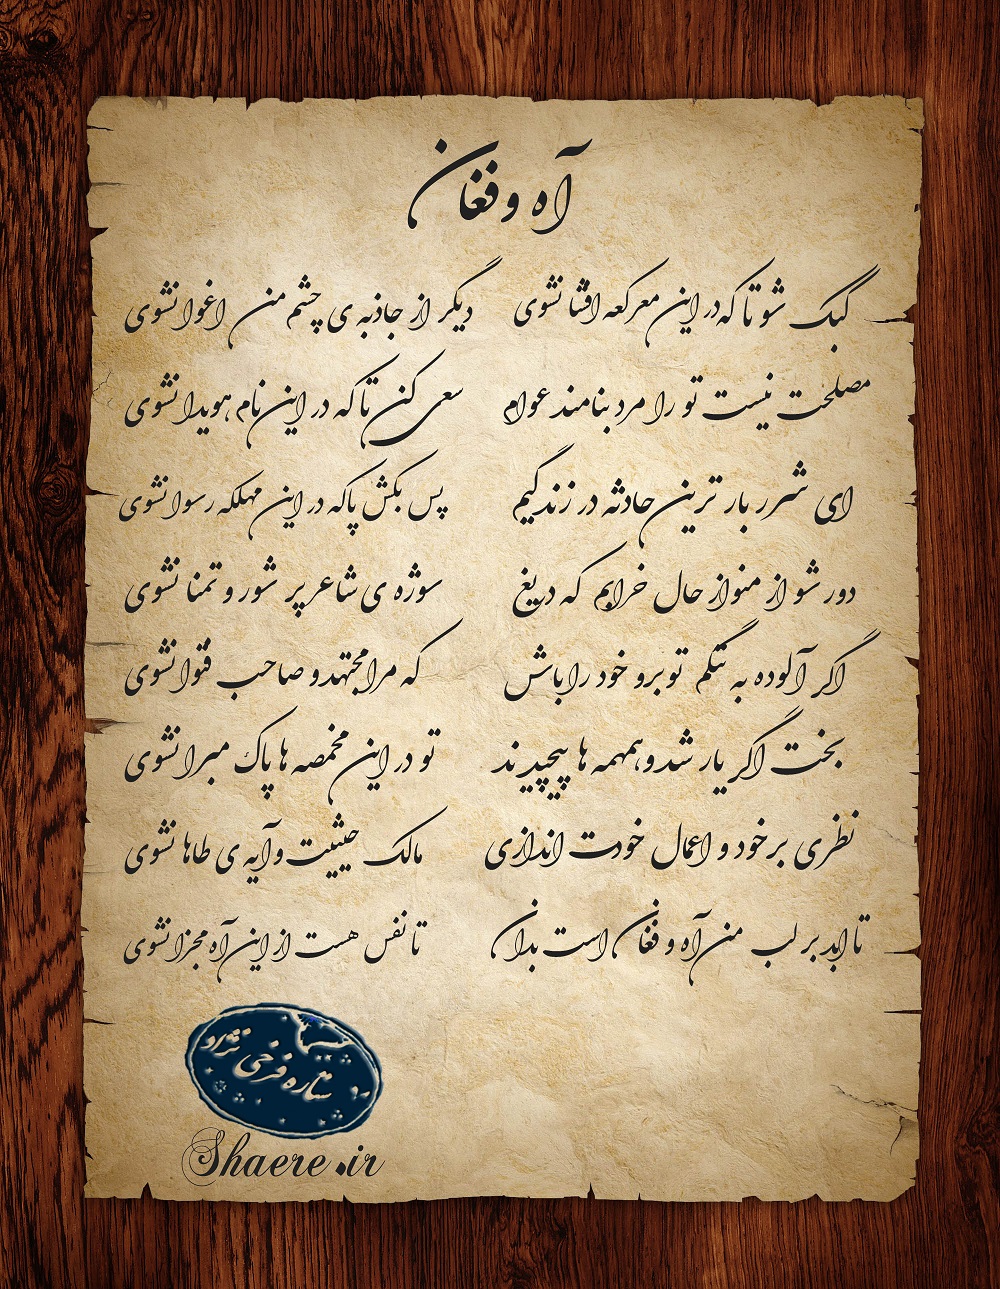 آه و فغان
گبک شو تا که در این معرکعه افشا نشوی دیگر از جاذبه ی چشم من اغوا نشوی
مصلحت نیست تو را مرد بنامند عوام سعی کن تا که در این نام هویدا نشوی
ای شرر بار ترین حادثه در زندگیم پس بکش پا که در این مهلکه رسوا نشوی
دور شو از من و از حال خرابم که دریغ سوژه ی شاعر پر شور و تمنا نشوی
اگر آلوده به ننگم تو برو خود را باش که مرا مجتهد و صاحب فتوا نشوی
بخت اگر یار شد و همهمه ها پیچیدند تو در این مخمصه ها پاک مبرا نشوی
نظری بر خود و اعمال خودت اندازی مالک حیثیت و آیه ی طاها نشوی
تا ابد بر لب من آه و فغان است بدان تا نفس هست از این آه مجزا نشوی
ستاره فرخی نژاد
Shaere.ir